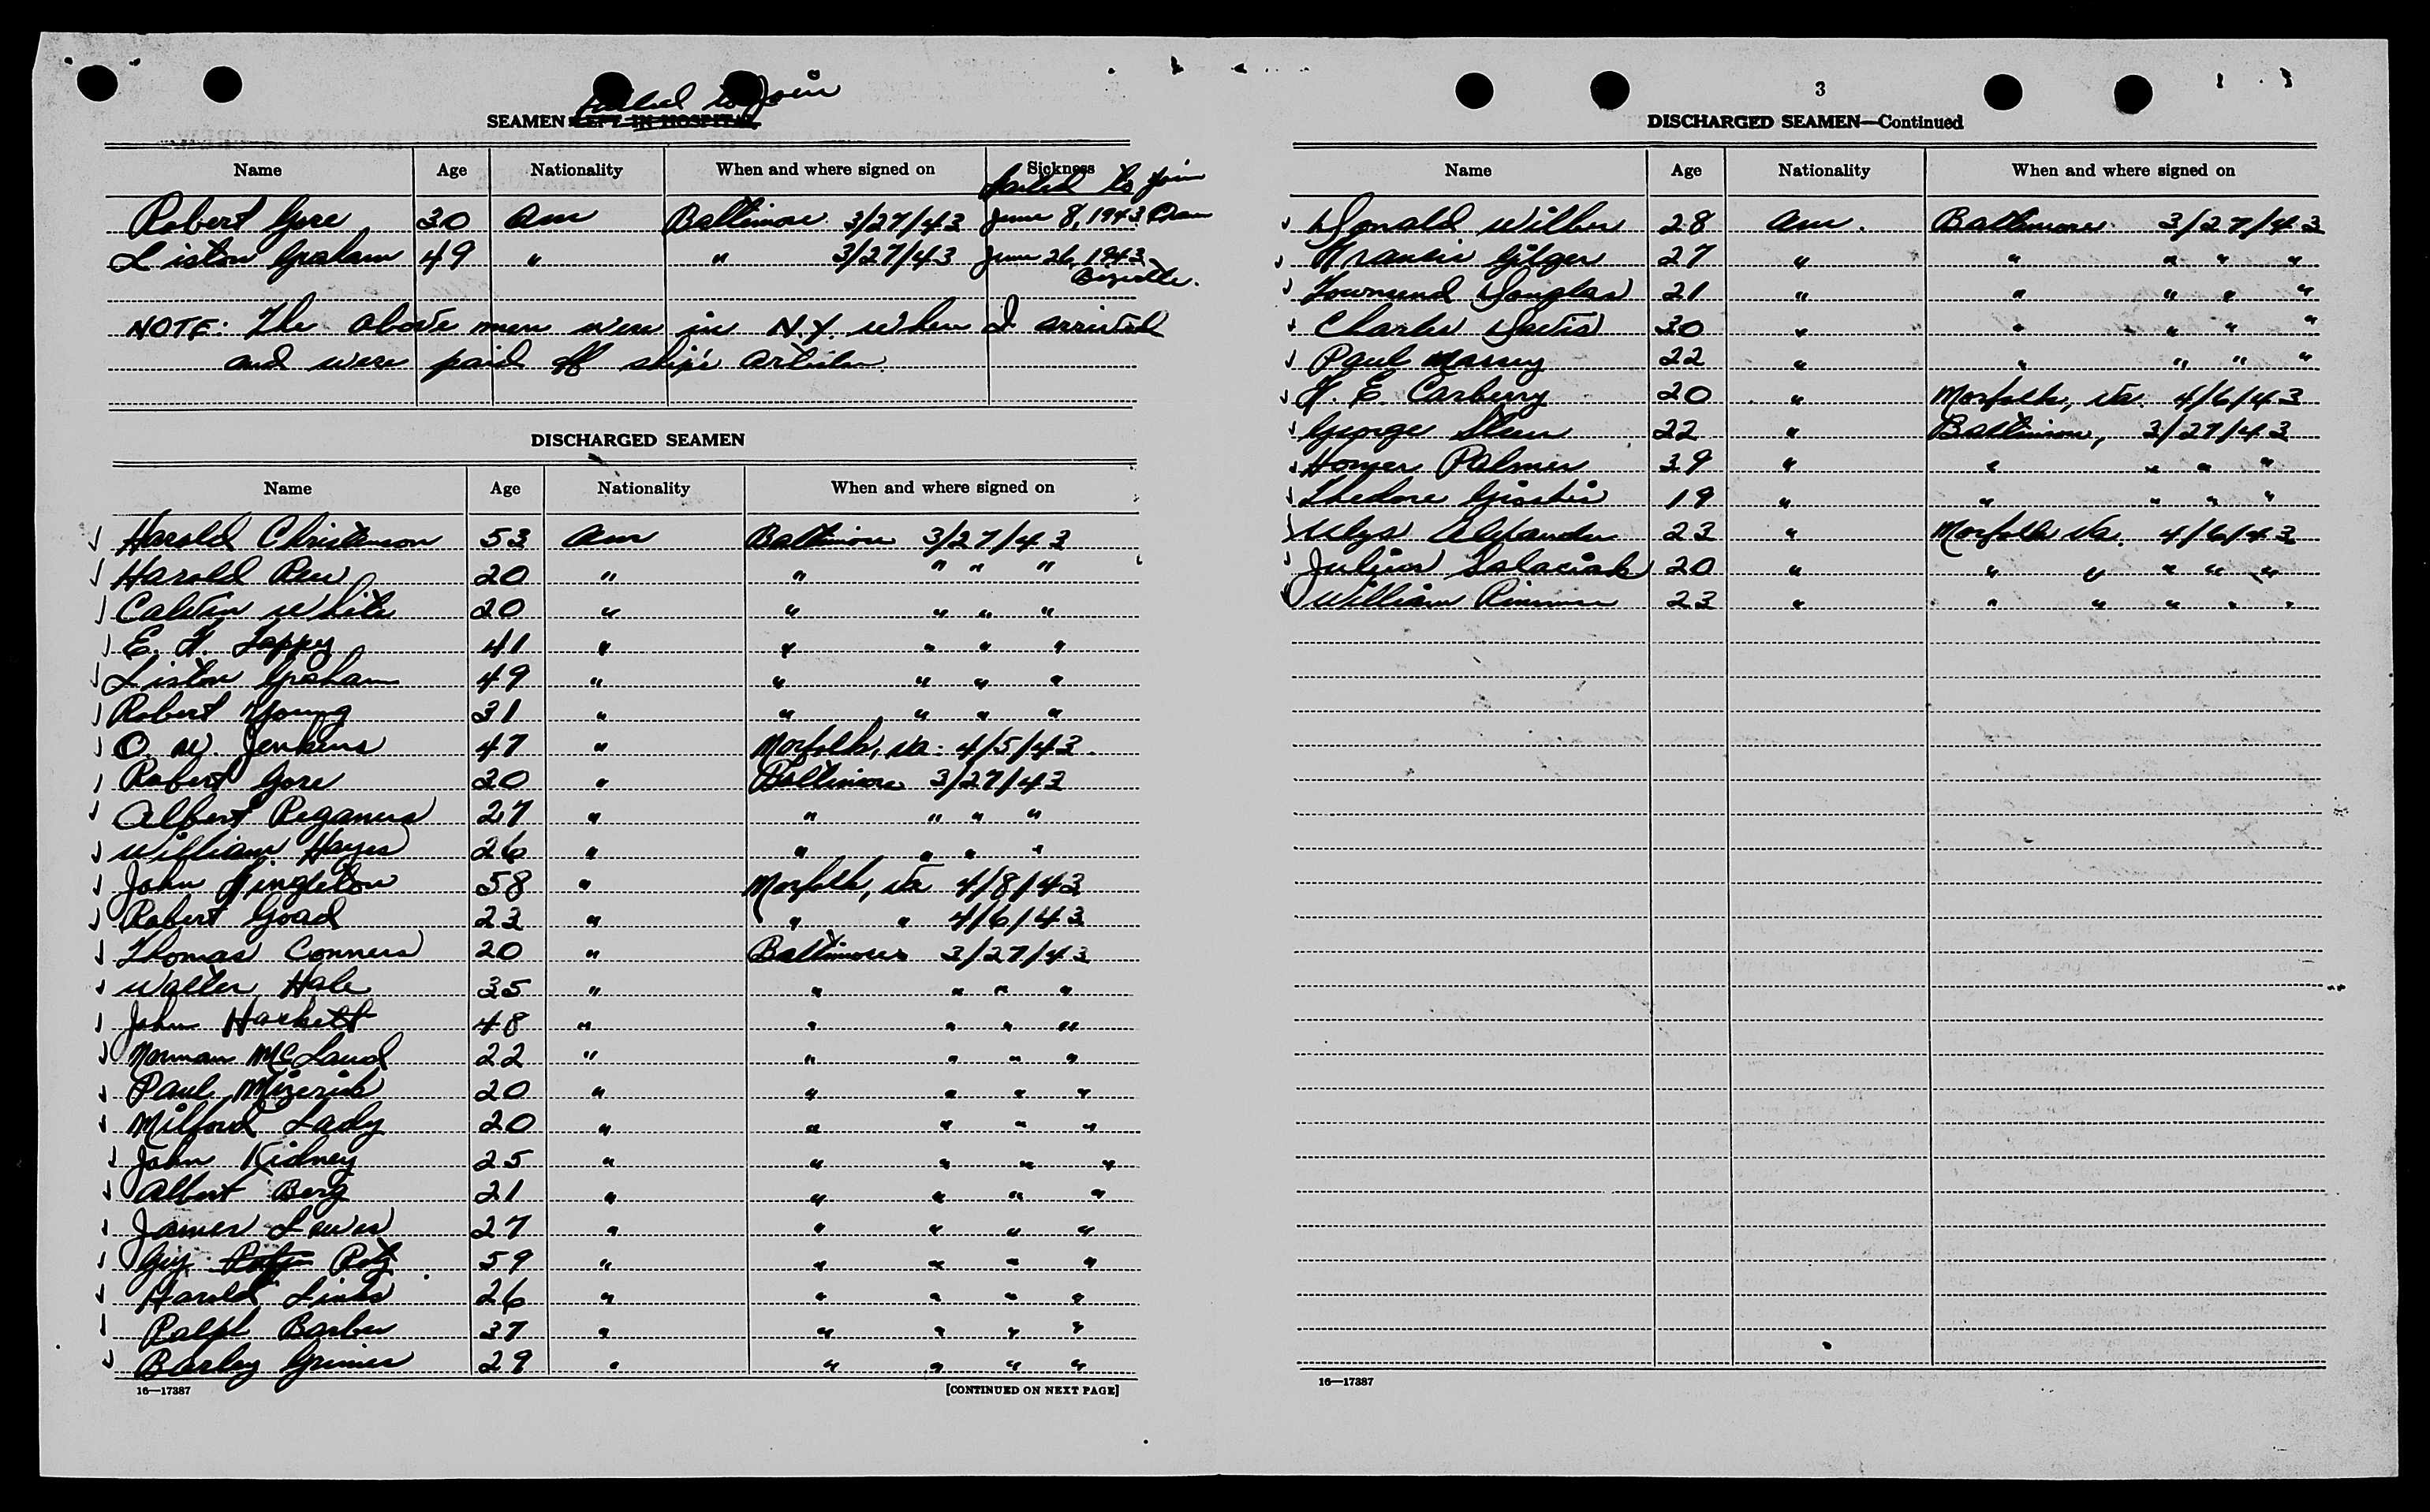 Failed to Join
SEAMEN LEFT IN HOSPITAL
Name Age Nationality When and where signed on Sickness
failed to join
Robert Gore 30 Am Baltimore 3/27/43 June 8, 1943 Oran
Liston Graham 49 " " 3/27/43 June 26, 1943
Bizerte.
NOTE: The above men were in N.Y. when I arrived
and were paid off ship's articles.
DISCHARGED SEAMEN
Name Age Nationality When and where signed on
Harold Christenson 53 Am Baltimore 3/27/43
Harold Rew 20 " " " " "
Calvin White 20 " " " " "
E. F. Tappey 41 " " " " "
Liston Graham 49 " " " " "
Robert Young 31 " " " " "
O. W. Jenkins 47 " Norfolk, Va. 4/5/43.
Robert Gore 30 " Baltimore 3/27/43
Albert Reganus 27 " " " " "
William Hayes 26 " " " " "
John Singleton 58 " Norfolk, Va 4/8/43
Robert Goad 23 " " " 4/6/43
Thomas Conners 20 " Baltimore 3/27/43
Walter Hale 35 " " " " "
John Harkett 48 " " " " "
Norman McLaud 22 " " " " "
Paul Mizerik 20 " " " " "
Milford Lady 20 " " " " "
John Kidney 25 " " " " "
Albert Berg 21 " " " " "
James Lewis 27 " " " " "
Guy Rotz 59 " " " " "
Harold Links 26 " " " " "
Ralph Barber 37 " " " " "
Barley Grimes 29 " " " " "
16—17387 [CONTINUED ON NEXT PAGE]
3
DISCHARGED SEAMEN—Continued
Name Age Nationality When and where signed on
Donald Wilber 28 Am. Baltimore 3/27/43
Francis Gilger 27 " " " " "
Townsend Douglas 21 " " " " "
Charles Davis 30 " " " " "
Paul Massey 22 " " " " "
F. E. Carberry 20 " Norfolk, Va. 4/6/43
George Steen 22 " Baltimore, 3/27/43
Homer Palmer 39 " " " " "
Thedore 19 " " " " "
Ulys Alexander 23 " Norfolk Va. 4/6/43
Julius Salaciak 20 " " " " " "
William Rimmer 23 " " " " " "
16—17387